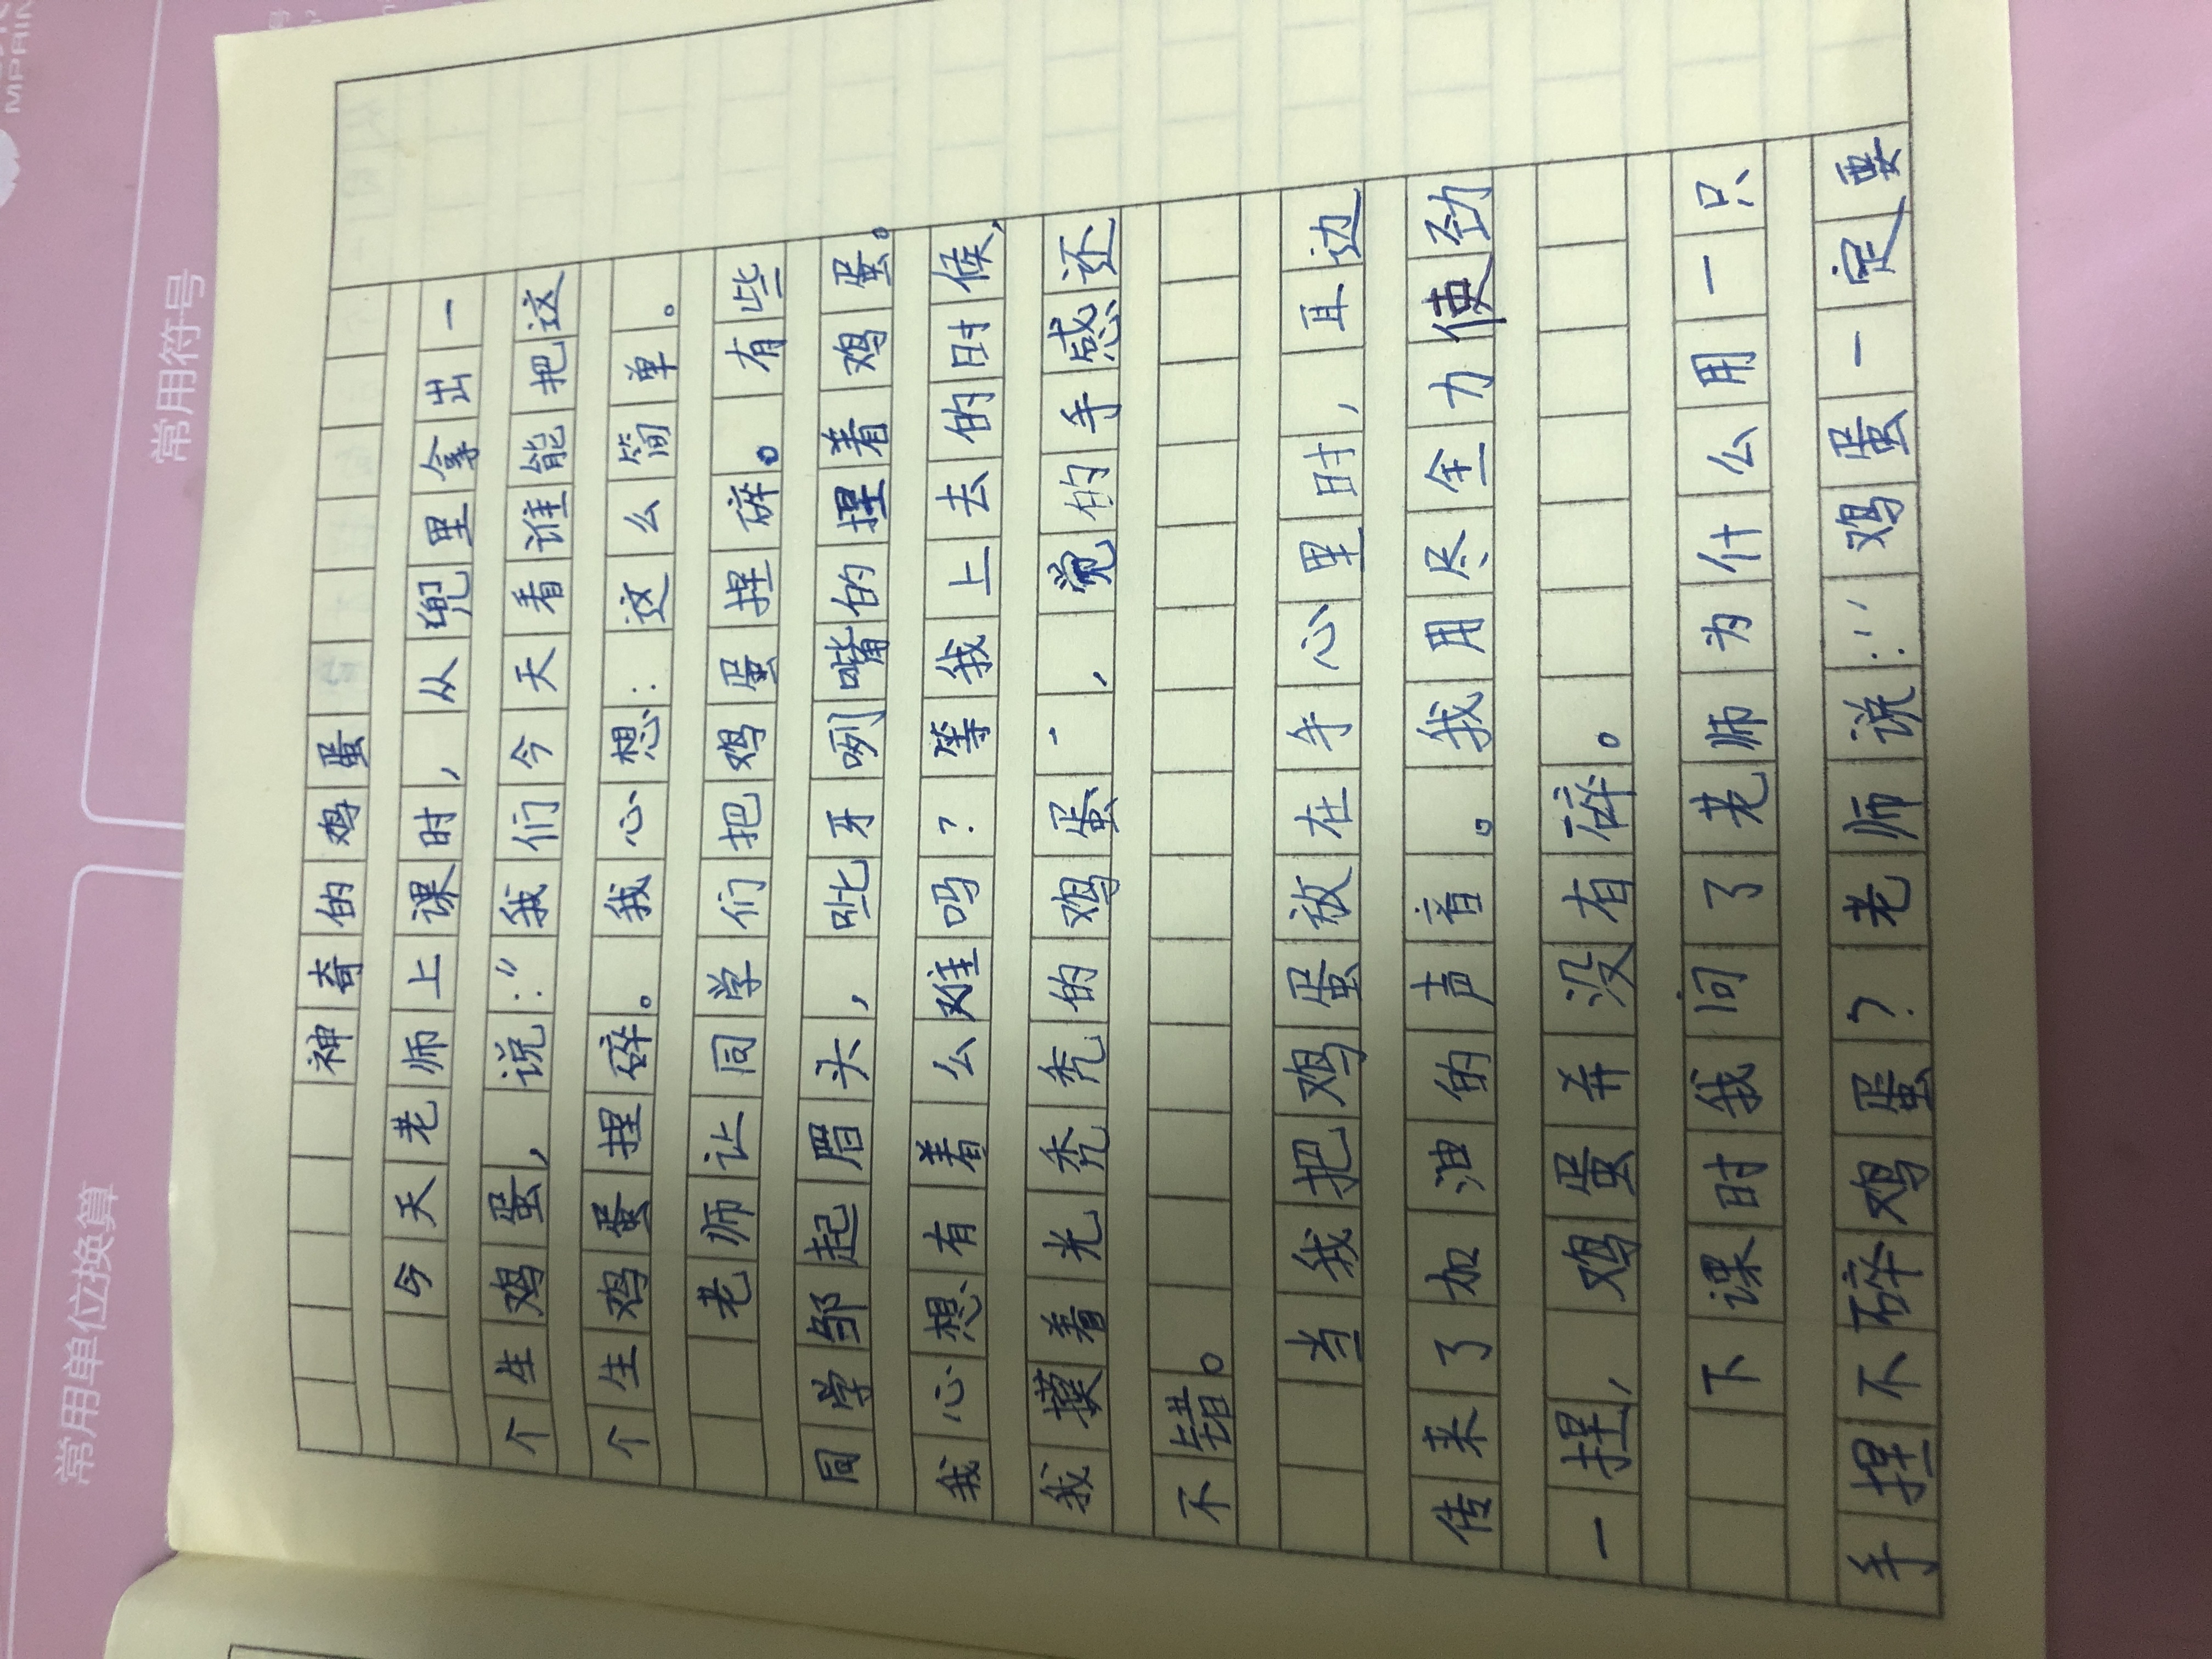 神奇的鸡蛋
今天老师上课时，从兜里拿出一
个生鸡蛋，说：“我们今天看谁能把这
个生鸡蛋捏碎。我心想：这么简单。
老师让同学们把鸡蛋捏碎。有些
同学邹起眉头，呲牙咧嘴的捏着鸡蛋。
我心想有着么难吗？等我上去的时候，
我摸着光秃秃的鸡蛋、，觉的手感还
不错。
当我把鸡蛋放在手心里时，耳边
传来了加油的声音。我用尽全力使劲
一捏，鸡蛋并没有碎。
下课时我问了老师为什么用一只
手捏不碎鸡蛋？老师说：“鸡蛋一定要
常用单位换算
常用符号